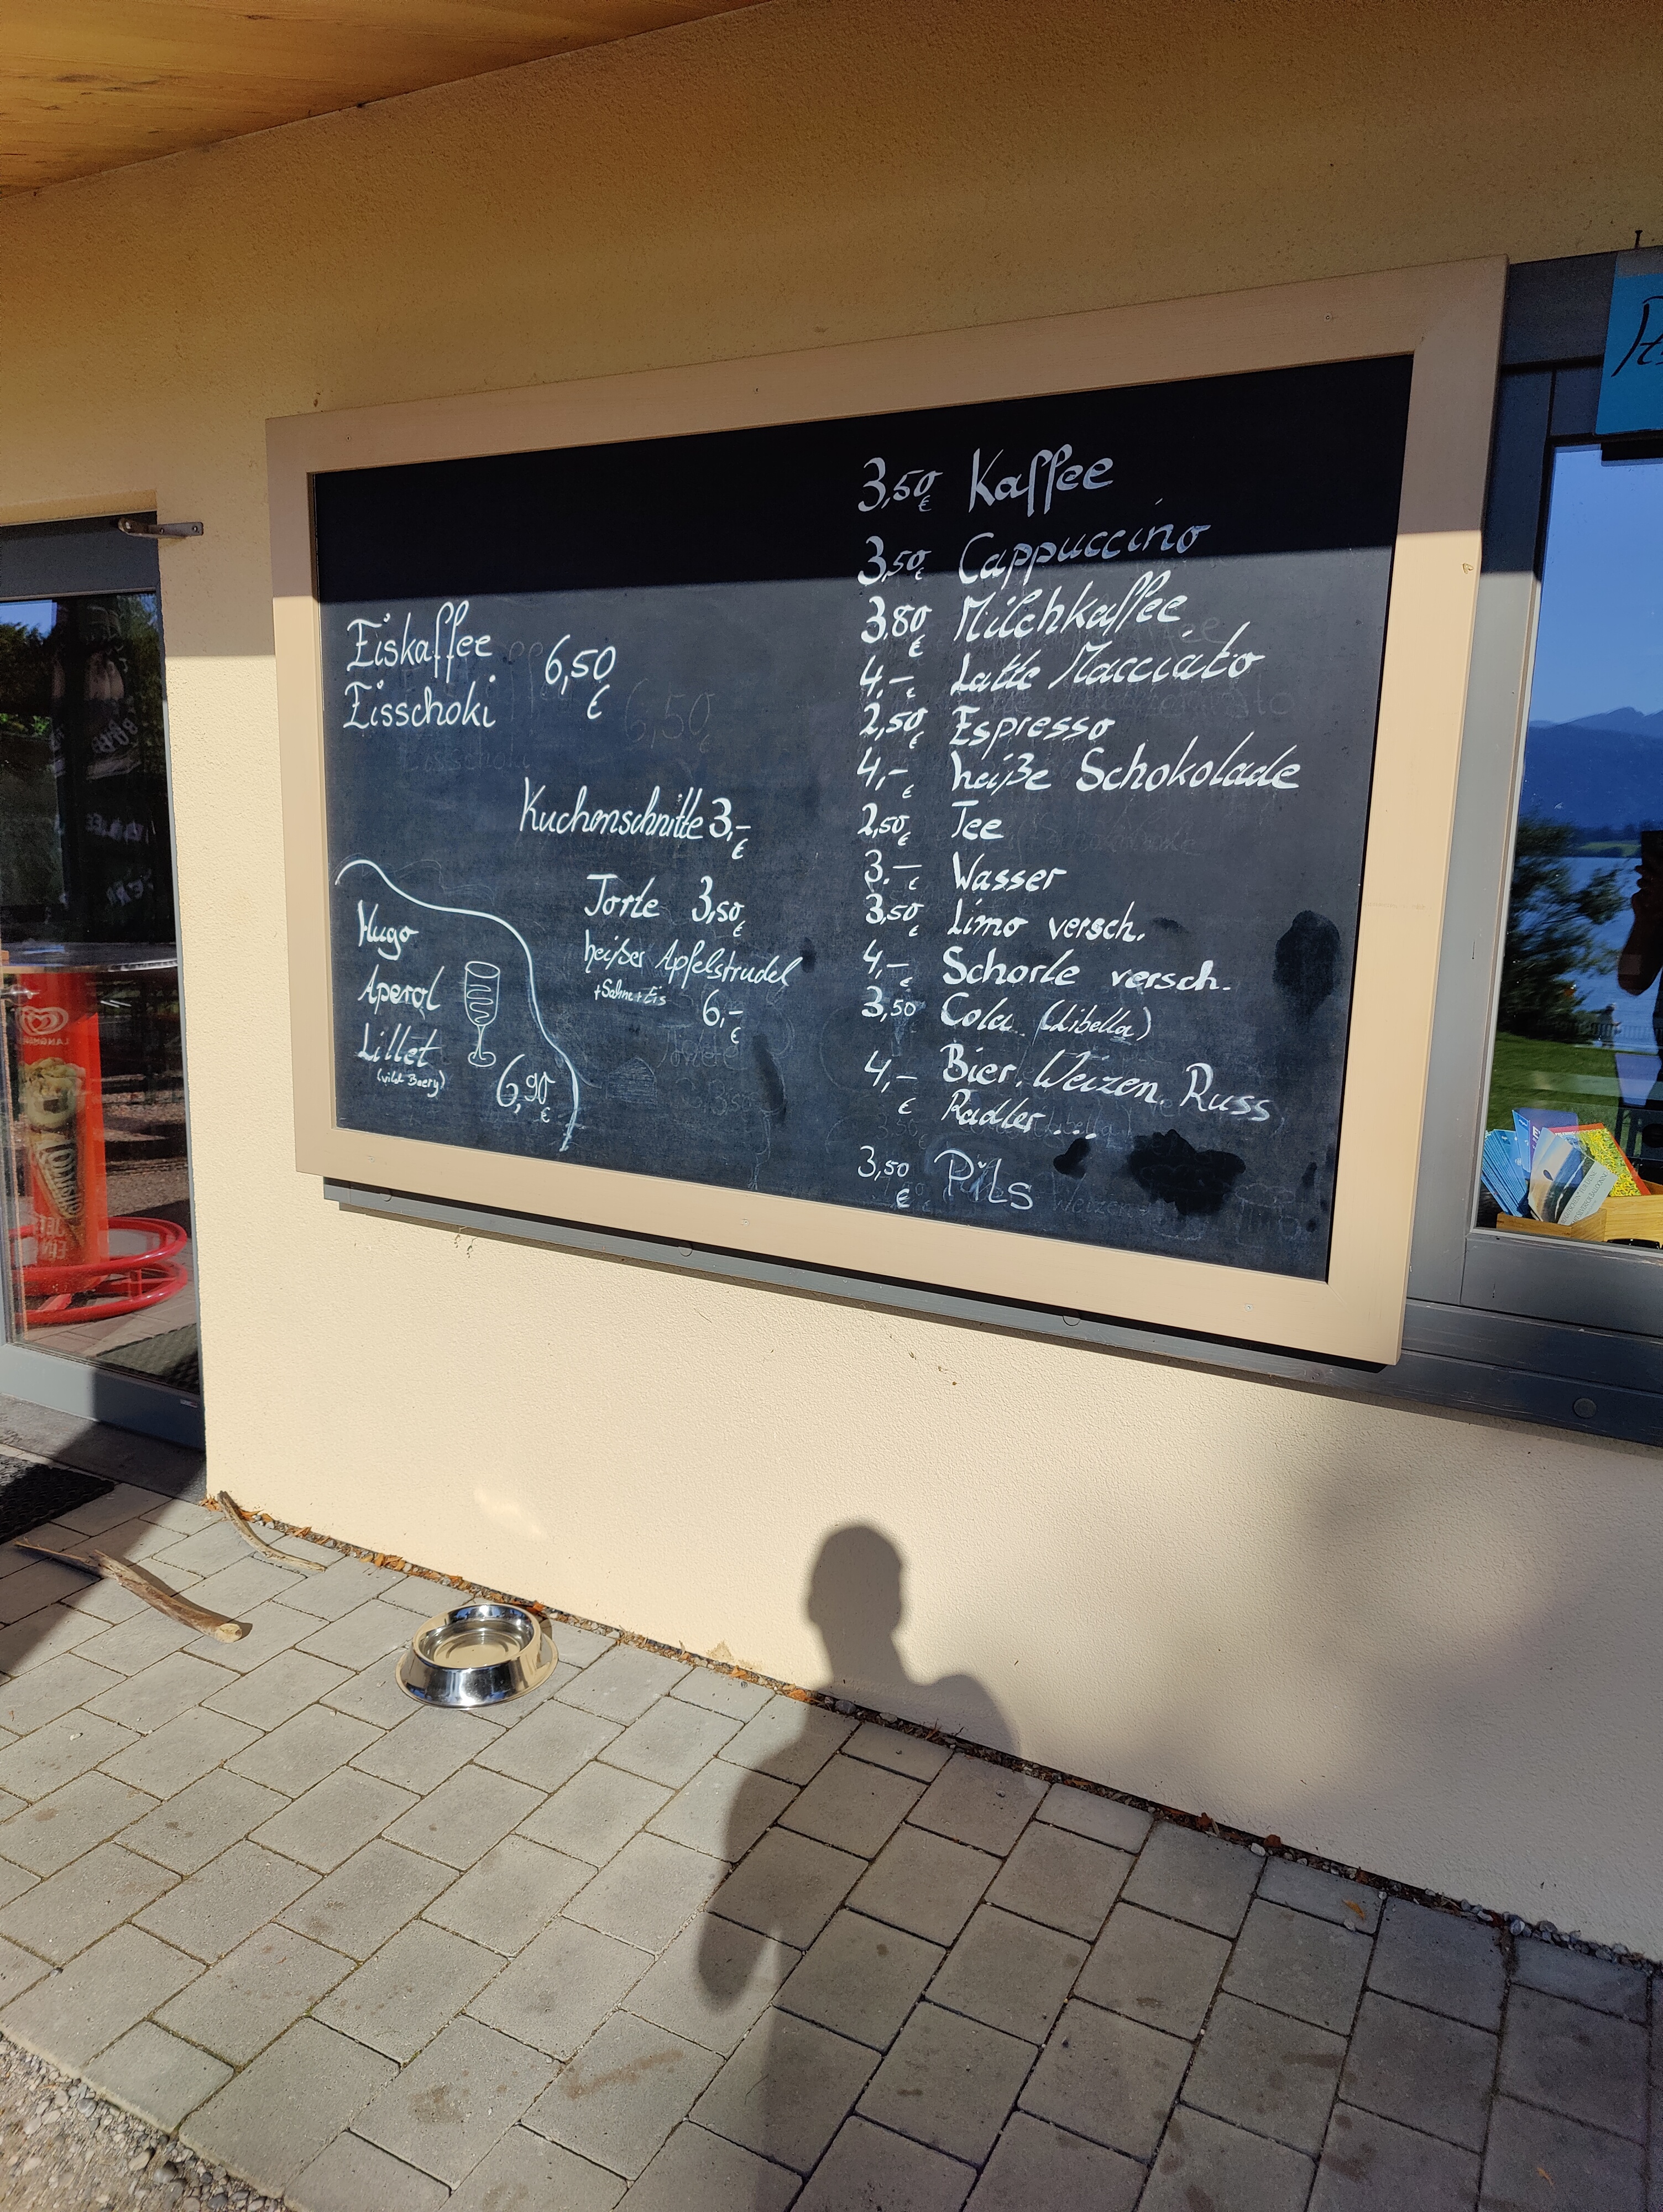 Eiskaffee 6,50
Eisschoki €
Kuchenschnitte 3,- €
Torte 3,50 €
heißer Apfelstrudel
+Sahne+Eis 6,- €
Hugo
Aperol
Lillet
(wild Beery) 6,90 €
3,50 € Kaffee
3,50 € Cappuccino
3.80 € Milchkaffee
4,- € Latte Macciato
2,50 € Espresso
4,- € heiße Schokolade
2,50 € Tee
3.- € Wasser
3,50 € Limo versch.
4,- € Schorle versch.
3,50 Cola (Libella)
4,- € Bier, Weizen, Russ
Radler...
3,50 € Pils